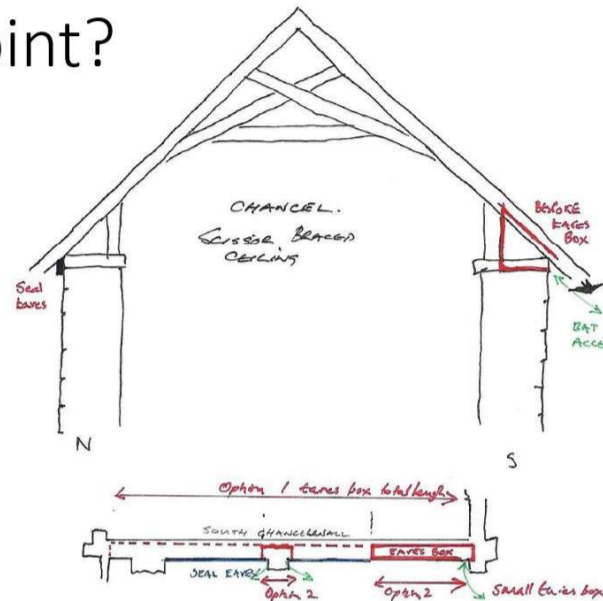 oint?
CHANCEL.
SCISSOR BRACED
CEILING
BESPOKE
EAVES
BOX
Seal
eaves
BAT
ACCE
N
S
Option 1 eaves box total length
SOUTH CHANCEL WALL
EAVES BOX
SEAL EAVES
Option 2
Option 2
Small eaves box